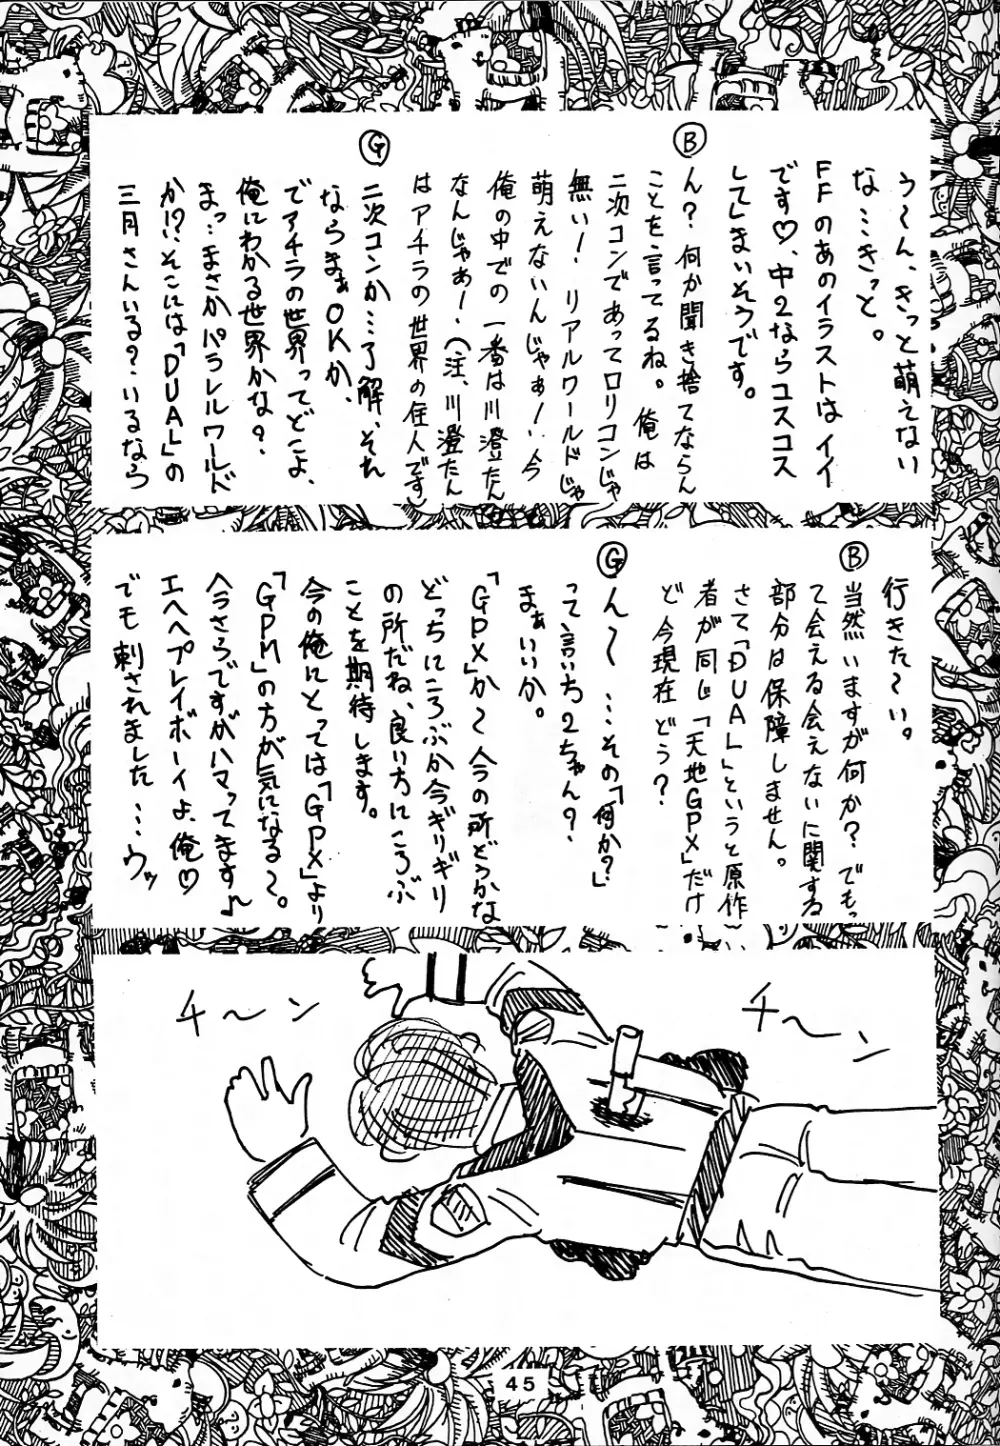 う〜ん、きっと萌えない
な…きっと。
FFのあのイラストはイイ
です♡、中2ならコスコス
してしまいそうです。
Ⓑ
ん?何か聞き捨てならん
ことを言ってるね。俺は
二次コンであってロリコンじゃ
無い!リアルワールドじゃ
萌えないんじゃぁ!、今
俺の中での一番は川澄たん
なんじゃぁ!、(注、川澄たん
はアチラの世界の住人です)
Ⓖ
二次コンか…了解、それ
ならまぁOKか、
でアチラの世界ってどこよ、
俺にわかる世界かな?
まっ…まさかパラレルワールド
か!?、そこには「DUAL」の
三月さんいる?いるなら
行きた〜い。
Ⓑ
当然いますが何か?でもっ
て会える会えないに関する
部分は保障しません。
さて「DUAL」というと原作
者が同じ「天地GPX」だけ
ど今現在どう?
Ⓖ
ん〜…その「何か?」
って言い方2ちゃん?
まぁいいか。
「GPX」か〜今の所どうかな
どっちにころぶか今ギリギリ
の所だね、良い方にころぶ
ことを期待します。
今の俺にとっては「GPX」より
「GPM」の方が気になる〜。
今さらですがハマってます♪
エヘヘプレイボーイよ、俺♡
でも刺されました…ウッ
チ〜ン
チ〜ン
45